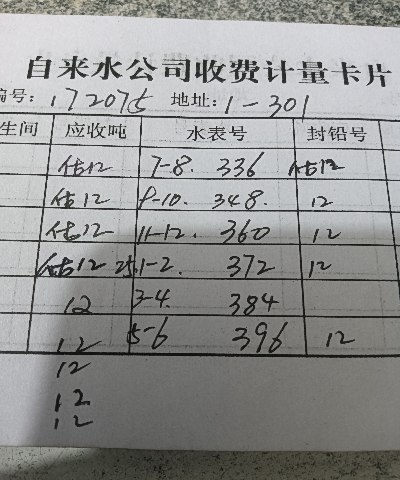 自来水公司收费计量卡片
编号: 172075 地址: 1-301
生间 应收吨 水表号 封铅号
估12 7-8. 336 估12
估12 9-10. 348. 12
估12 11-12. 360 12
估12 25.1-2. 372 12
12 3-4. 384
12 5-6 396 12
12
12
12